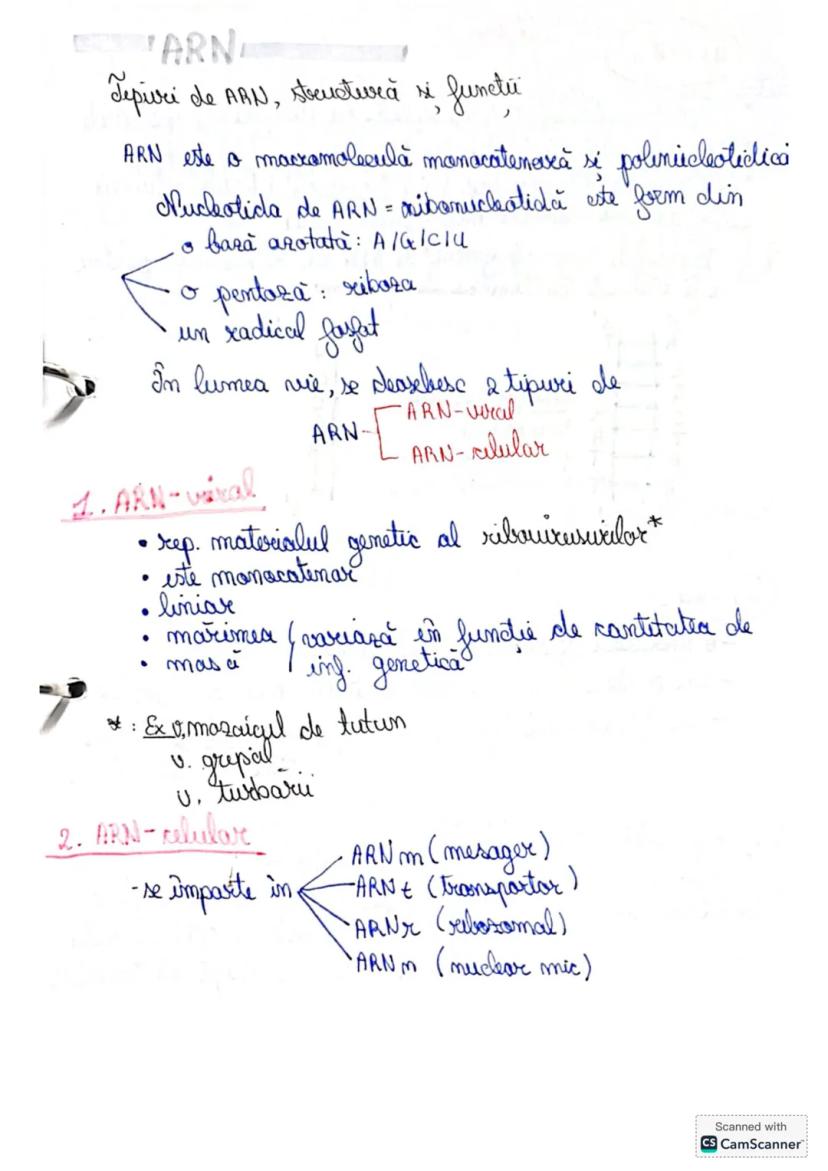 ARN
Tipuri de ARN, structură și funcții
ARN este o macromoleculă monocatenară și polinucleotidică
Nucleotida de ARN = ribonucleotidă este form din
o bază azotată: A/G/C/U
o pentoză: riboza
un radical fosfat
În lumea vie, se deosebesc 2 tipuri de
ARN-viral
ARN
ARN-celular
1. ARN-viral
• rep. materialul genetic al ribovirusurilor*
• este monocatenar
• liniar
• mărimea / variază în funcție de cantitatea de
• masa / inf. genetică
* : Ex v. mozaicul de tutun
v. gripal
v. turbării
2. ARN-celular
ARN m (mesager)
-se împarte în ARN t (transportor)
ARN r (ribozomal)
ARN m (nuclear mic)
Scanned with
CS CamScanner